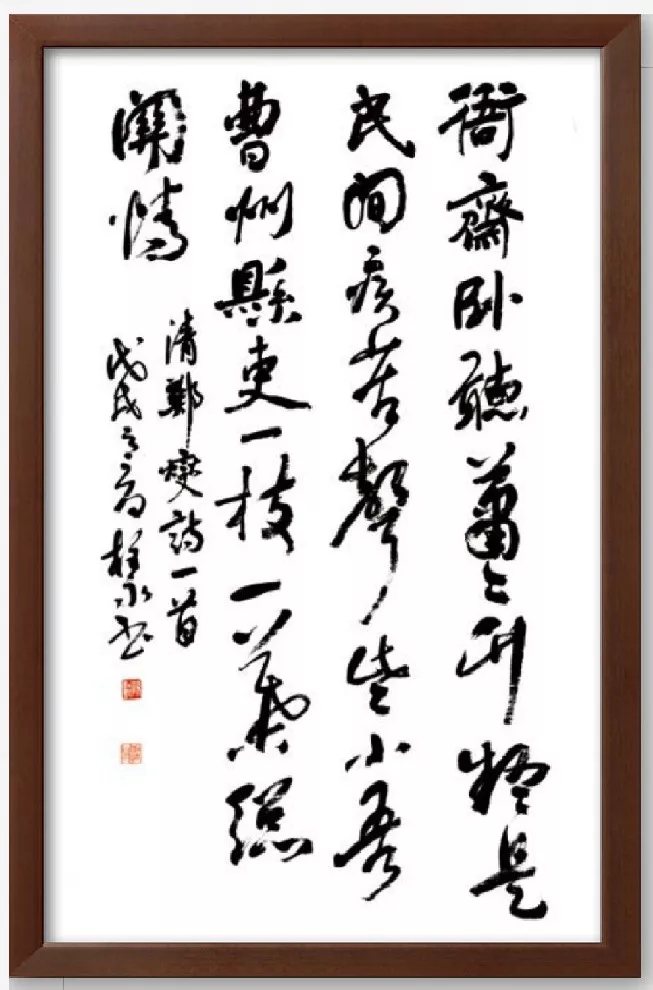 衙齋卧聽蕭〻竹疑是
民間疾苦聲些小吾
曹州縣吏一枝一葉總
關情
清鄭燮詩一首
戊戌之永書